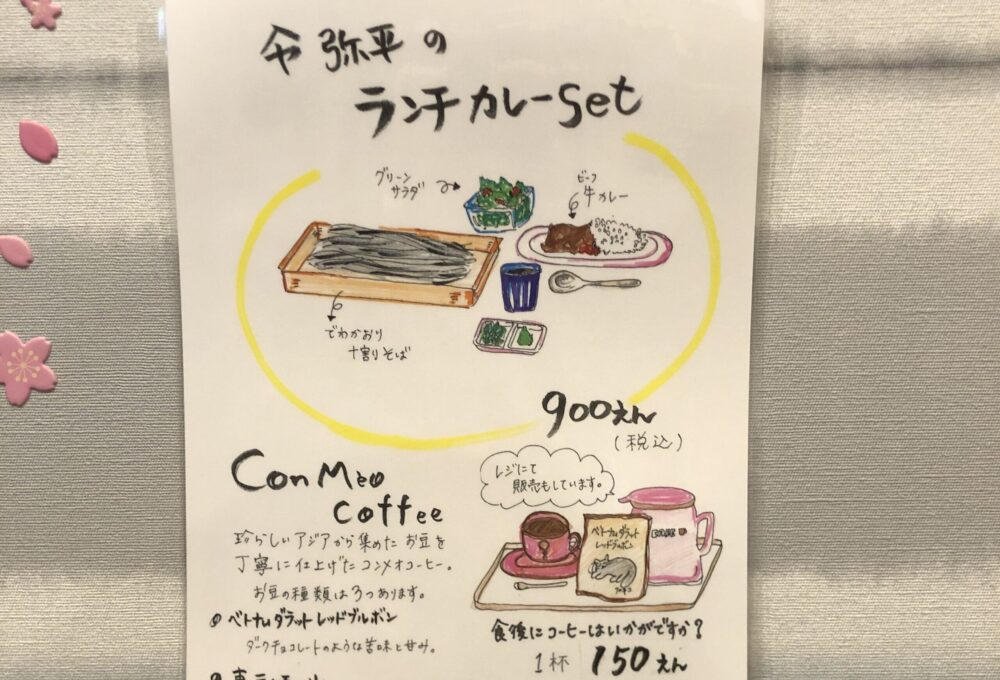 弥平の
ランチカレーSet
グリーン
サラダ
ビーフ
牛カレー
でわかおり
十割りそば
900えん
(税込)
Con Mèo
Coffee
珍らしいアジアから集めたお豆を
丁寧に仕上げたコンメオコーヒー。
お豆の種類は3つあります。
ベトナムダラットレッドブルボン
ダークチョコレートのような苦味と甘み。
レジにて
販売もしています。
ベトナムダラット
レッドブルボン
食後にコーヒーはいかがですか?
1杯 150えん